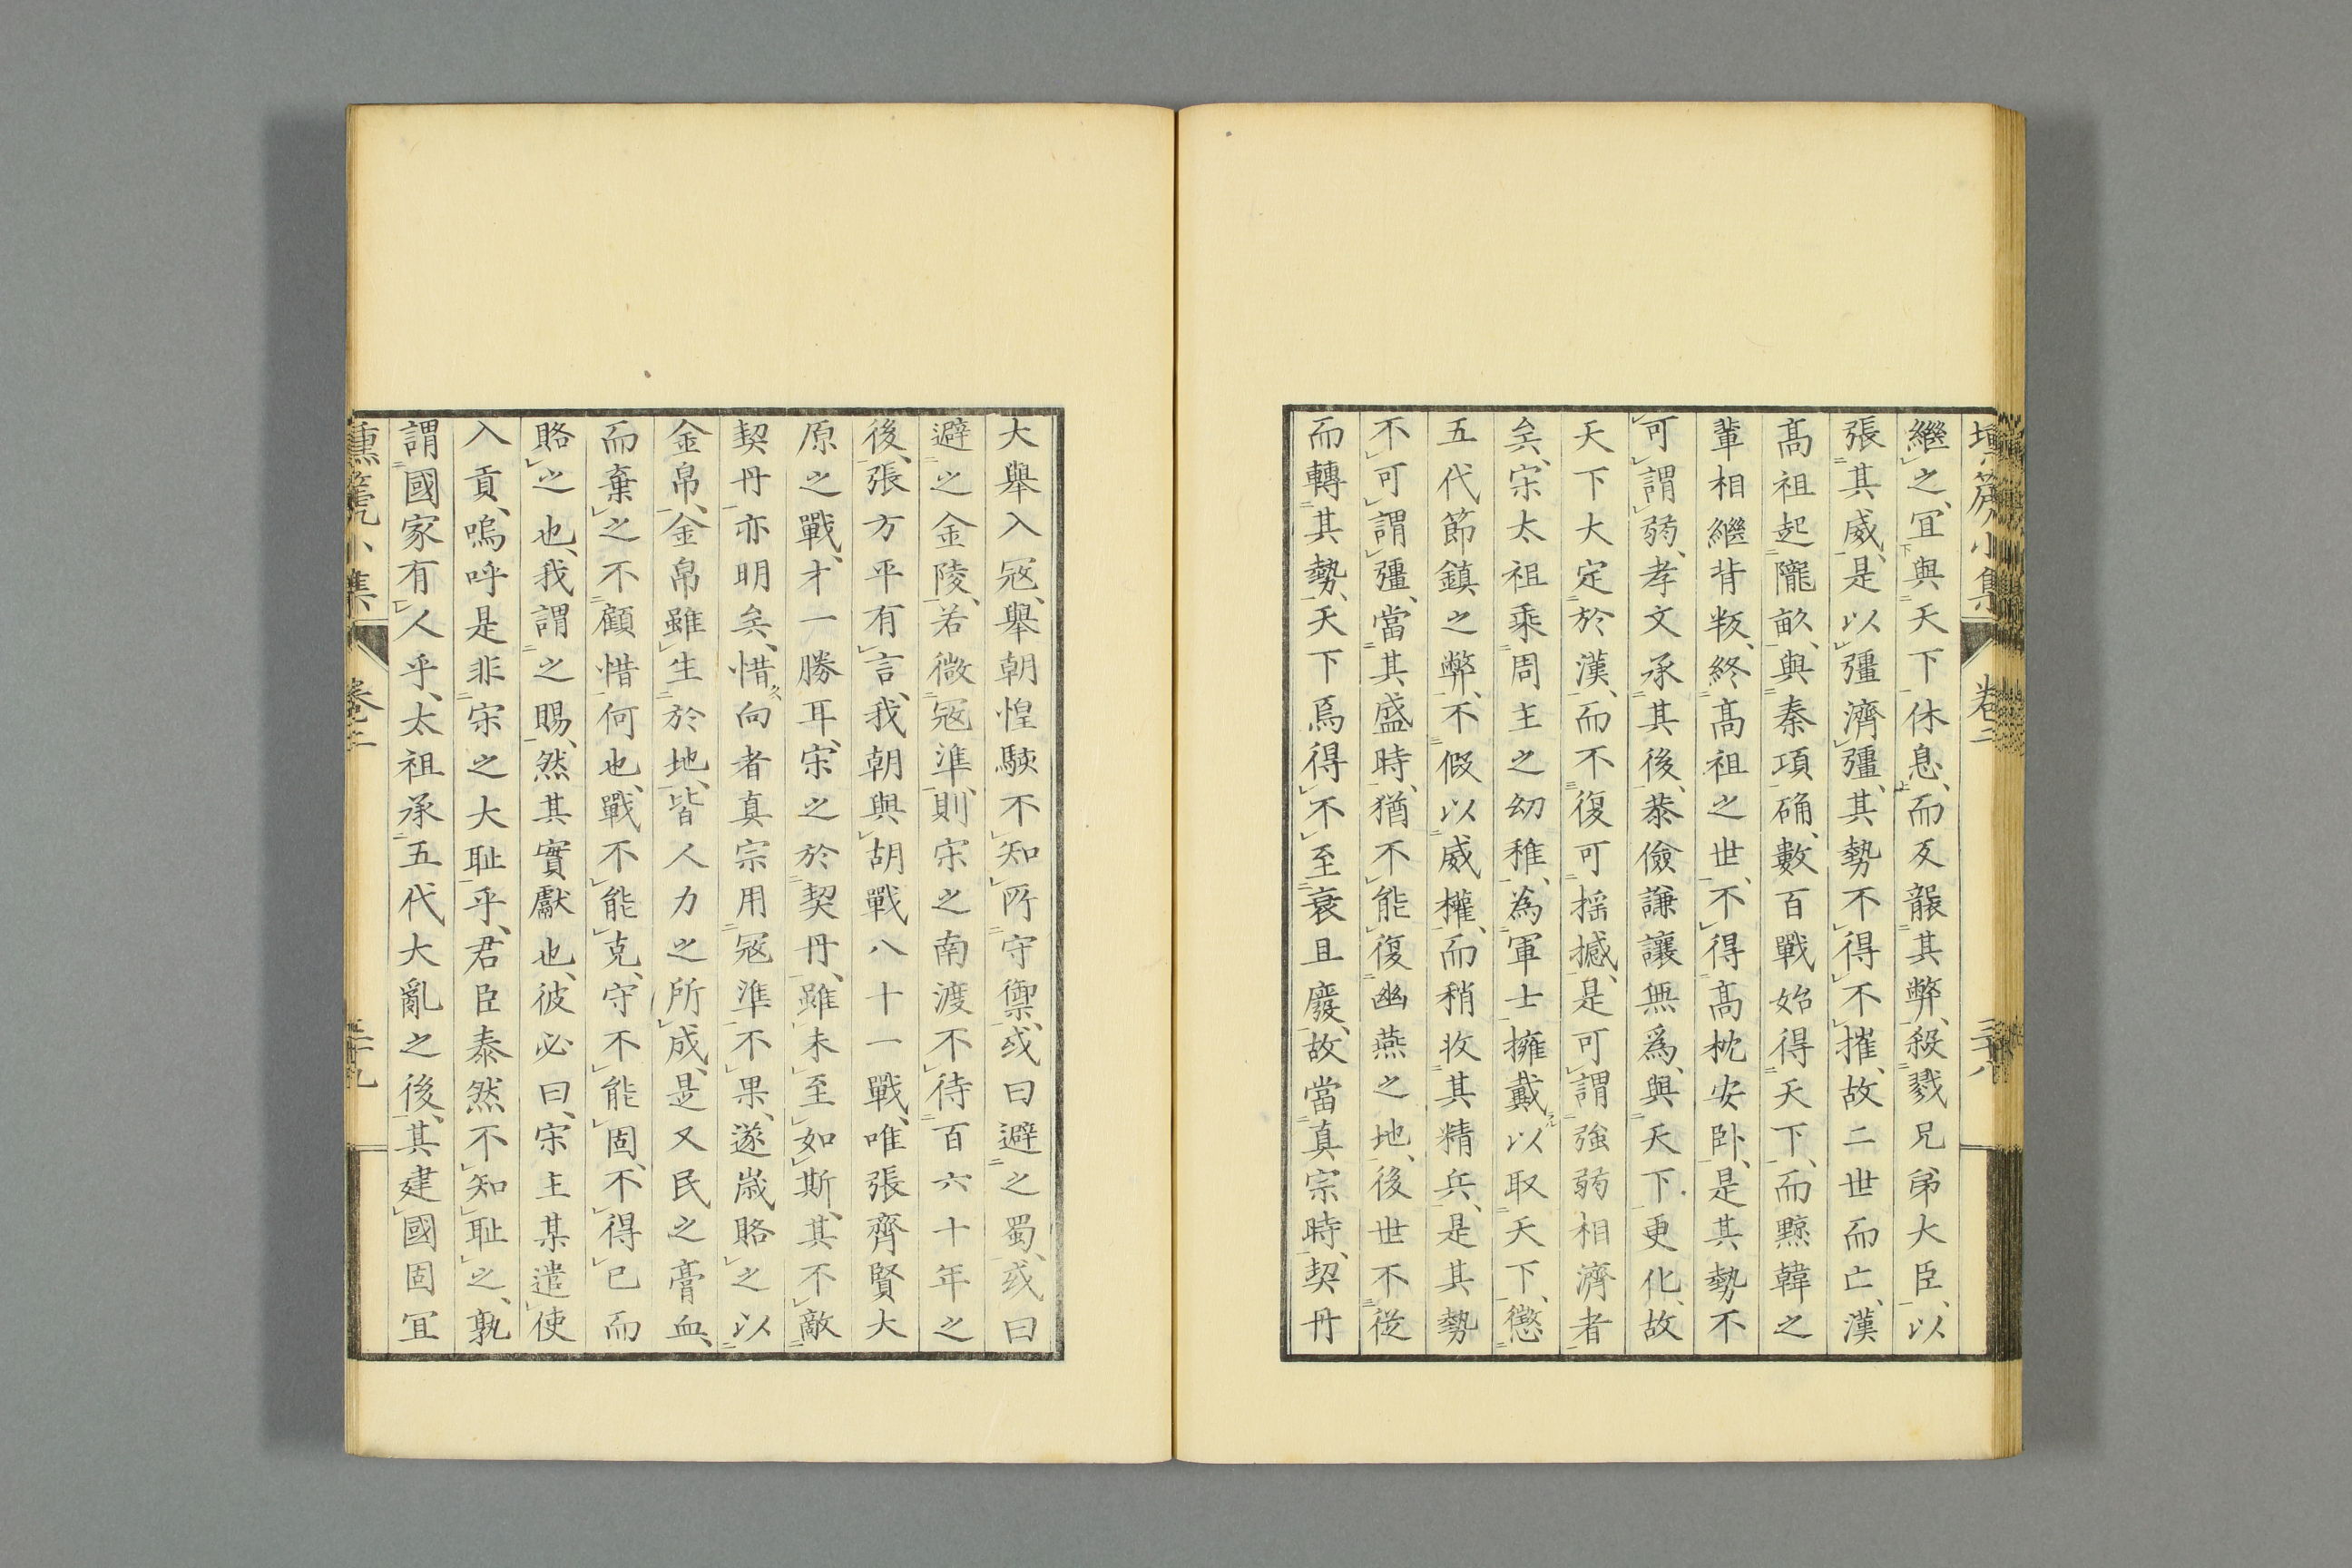 壎篪小集 卷二 二十八
繼之、冝與天下休息、而反襲其弊、殺戮兄弟大臣、以
張其威、是以彊濟彊、其勢不得不摧、故二世而亡、漢
髙祖起隴畝、與秦項确、數百戰始得天下、而黥韓之
輩相繼背叛、終髙祖之世、不得髙枕安卧、是其勢不
可謂弱、孝文承其後、恭儉謙讓無爲、與天下更化、故
天下大定於漢、而不復可揺撼、是可謂強弱相濟者
矣、宋太祖乘周主之幼稚、為軍士擁戴以取天下、懲
五代節鎮之弊、不假以威權、而稍收其精兵、是其勢
不可謂彊、當其盛時、猶不能復幽燕之地、後世不從
而轉其勢、天下焉得不至衰且廢、故當真宗時、契丹
大舉入寇、舉朝惶駭不知所守禦、或曰避之蜀、或曰
避之金陵、若微寇準、則宋之南渡不待百六十年之
後、張方平有言、我朝與胡戰八十一戰、唯張齊賢大
原之戰、才一勝耳、宋之於契丹、雖未至如斯、其不敵
契丹亦明矣、惜向者真宗用寇準不果、遂歳賂之以
金帛、金帛雖生於地、皆人力之所成、是又民之膏血、
而棄之不顧惜何也、戰不能克、守不能固、不得已而
賂之也、我謂之賜、然其實獻也、彼必曰、宋主某遣使
入貢、嗚呼是非宋之大耻乎、君臣泰然不知耻之、孰
謂國家有人乎、太祖承五代大亂之後、其建國固冝
壎篪小集 卷二 二十九